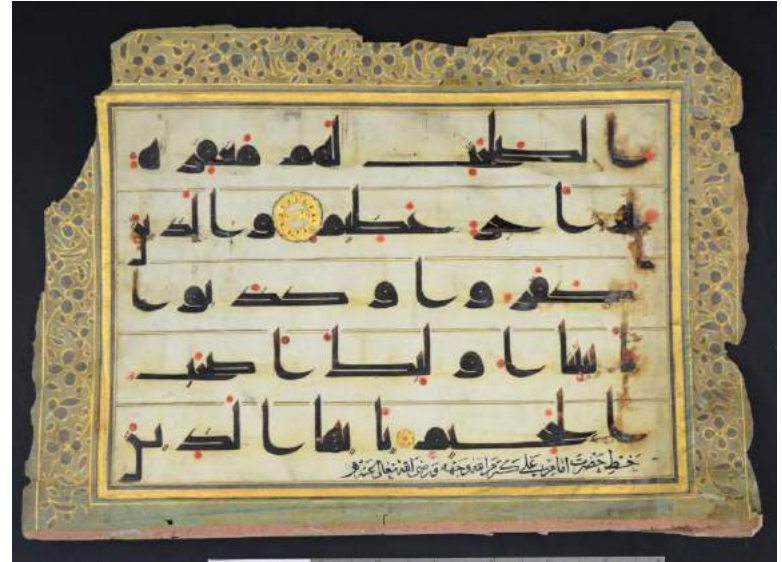 الصلحت لهم مغفرة
واجر عظيم والذين
كفروا وكذبوا
بايتنا اولئك اصحب
الجحيم يايها الذين
خط حضرت علي كرم الله وجهه و رضي الله تعالى عنه